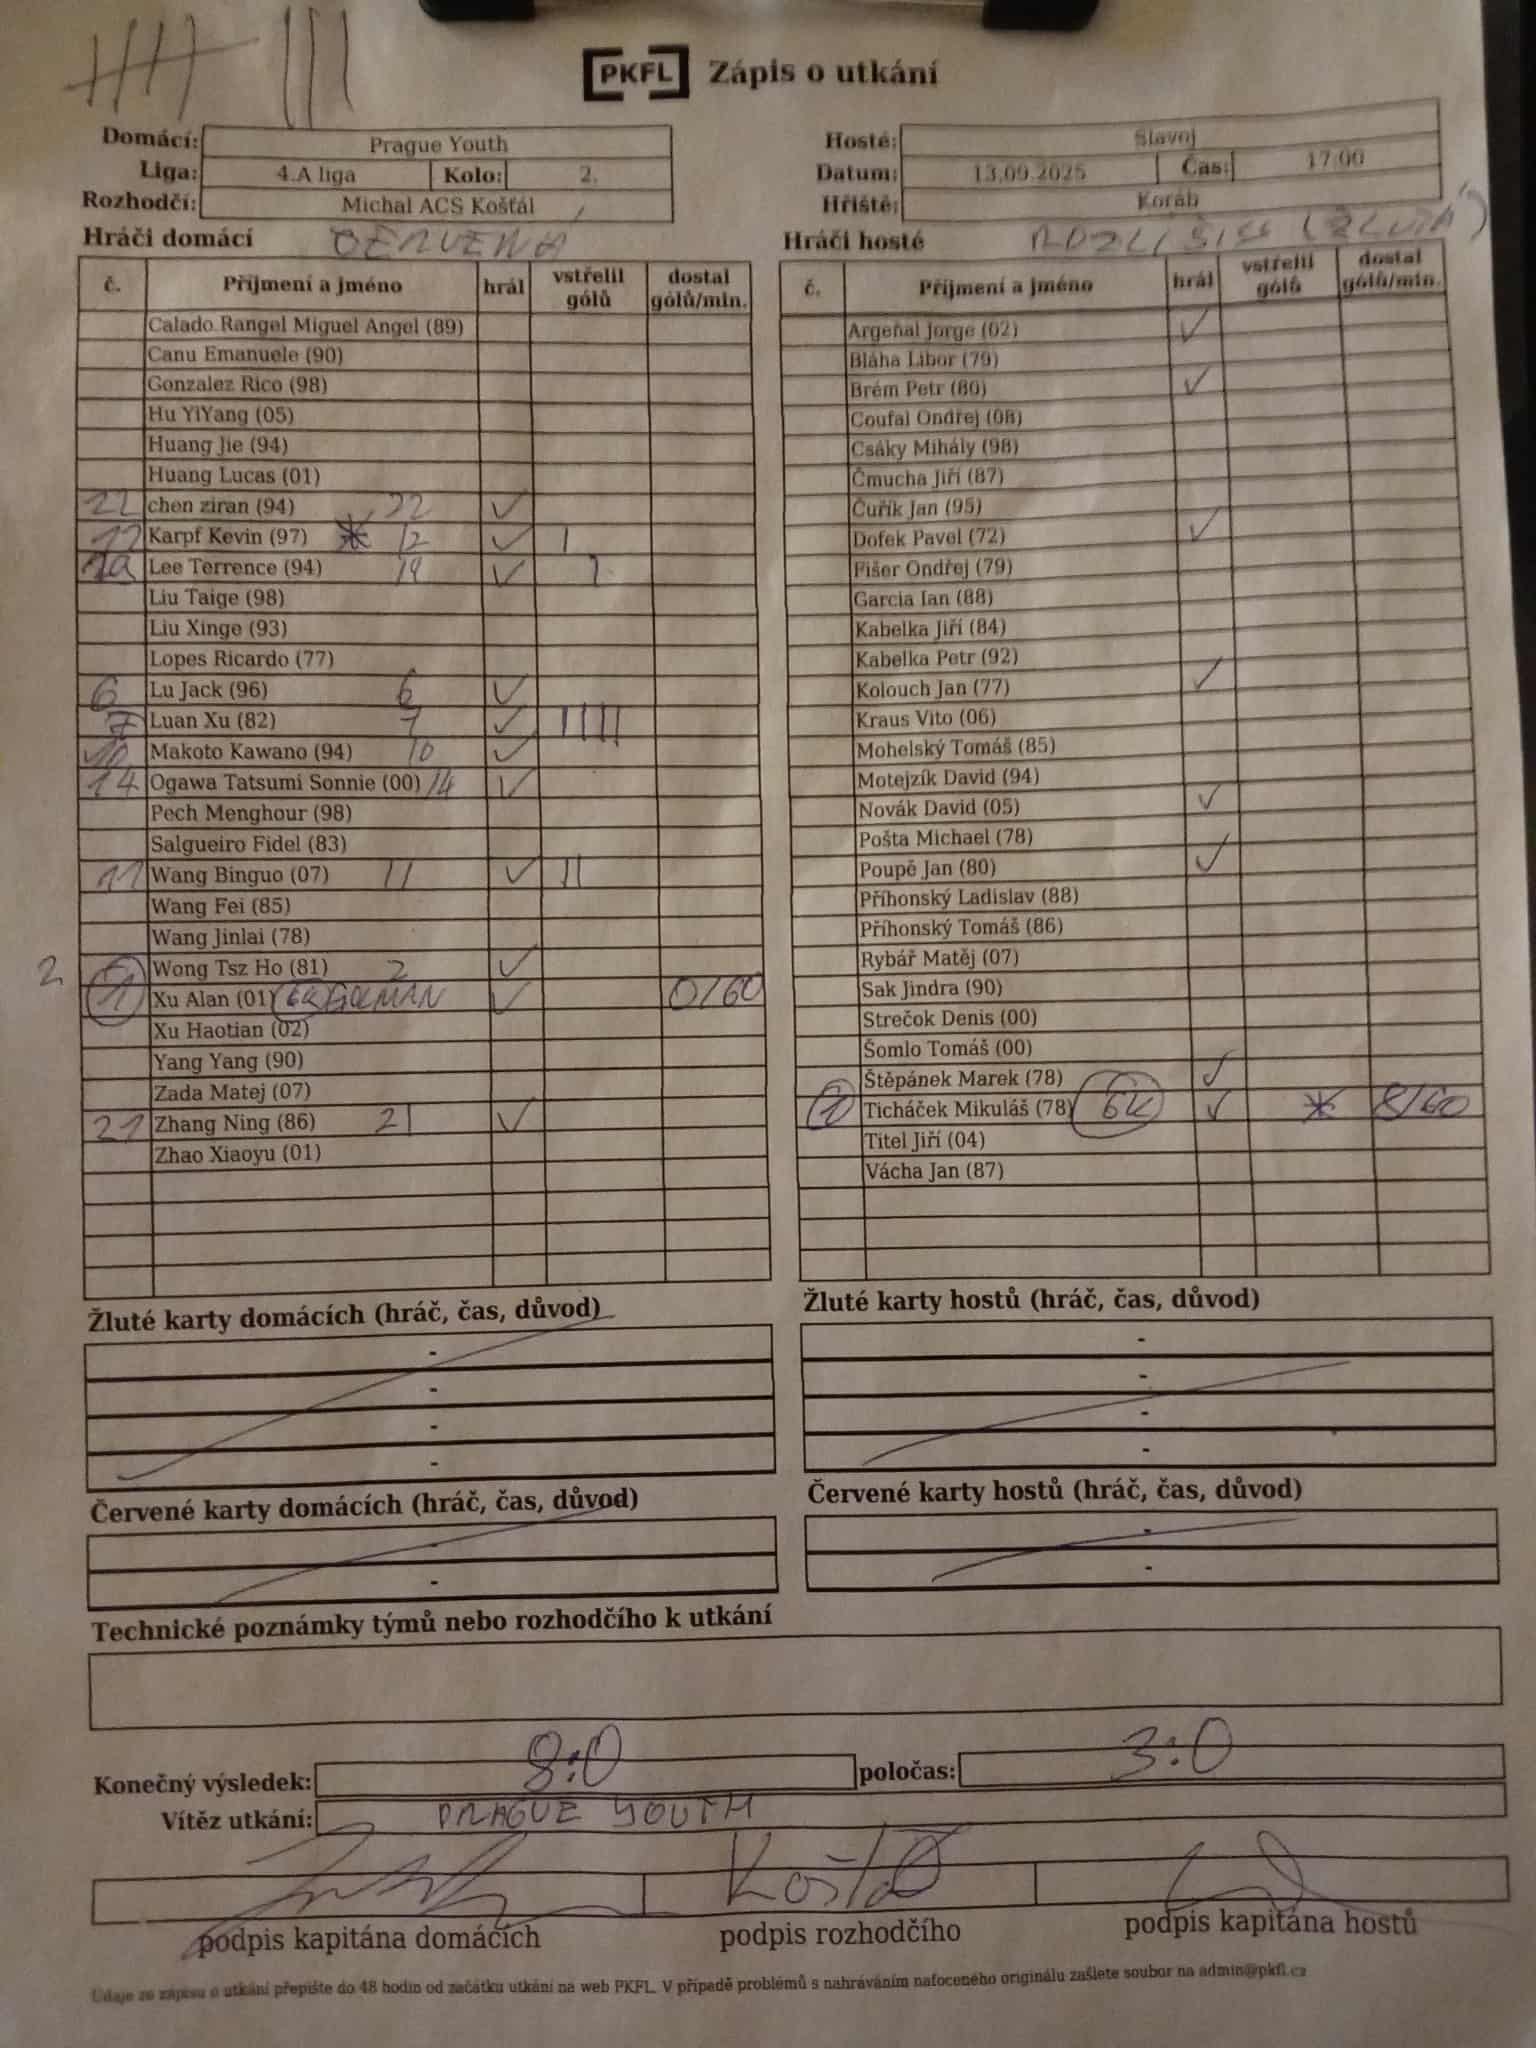 PKFL Zápis o utkání
Domácí: Prague Youth
Liga: 4.A liga Kolo: 2.
Rozhodčí: Michal ACS Košťál
Hosté: Slavoj
Datum: 13.09.2025 Čas: 17:00
Hřiště: Koráb
Hráči domácí ČERVENÁ
č. Příjmení a jméno hrál vstřelil gólů dostal gólů/min.
Calado Rangel Miguel Angel (89)
Canu Emanuele (90)
Gonzalez Rico (98)
Hu YiYang (05)
Huang Jie (94)
Huang Lucas (01)
22 chen ziran (94) 22 ✓
12 Karpf Kevin (97) * 12 ✓ |
19 Lee Terrence (94) 19 ✓ |
Liu Taige (98)
Liu Xinge (93)
Lopes Ricardo (77)
6 Lu Jack (96) 6 ✓
7 Luan Xu (82) 7 ✓ ||||
10 Makoto Kawano (94) 10 ✓
14 Ogawa Tatsumi Sonnie (00) 14 ✓
Pech Menghour (98)
Salgueiro Fidel (83)
11 Wang Binguo (07) 11 ✓ ||
Wang Fei (85)
Wang Jinlai (78)
2 Wong Tsz Ho (81) 2 ✓
1 Xu Alan (01) GK GOLMAN ✓ 0/60
Xu Haotian (02)
Yang Yang (90)
Zada Matej (07)
21 Zhang Ning (86) 21 ✓
Zhao Xiaoyu (01)
Hráči hosté (ŽLUTÁ)
č. Příjmení a jméno hrál vstřelil gólů dostal gólů/min.
Argeñal Jorge (02) ✓
Bláha Libor (79)
Brém Petr (80) ✓
Coufal Ondřej (08)
Csáky Mihály (98)
Čmucha Jiří (87)
Čuřík Jan (95)
Dofek Pavel (72) ✓
Fišer Ondřej (79)
Garcia Ian (88)
Kabelka Jiří (84)
Kabelka Petr (92)
Kolouch Jan (77) ✓
Kraus Vito (06)
Mohelský Tomáš (85)
Motejzík David (94)
Novák David (05) ✓
Pošta Michael (78)
Poupě Jan (80) ✓
Příhonský Ladislav (88)
Příhonský Tomáš (86)
Rybář Matěj (07)
Sak Jindra (90)
Strečok Denis (00)
Šomlo Tomáš (00)
Štěpánek Marek (78) ✓
1 Ticháček Mikuláš (78) GK ✓ * 8/60
Titel Jiří (04)
Vácha Jan (87)
Žluté karty domácích (hráč, čas, důvod)
-
-
-
-
Žluté karty hostů (hráč, čas, důvod)
-
-
-
-
Červené karty domácích (hráč, čas, důvod)
-
-
Červené karty hostů (hráč, čas, důvod)
-
-
Technické poznámky týmů nebo rozhodčího k utkání
Konečný výsledek: 8:0 poločas: 3:0
Vítěz utkání: PRAGUE YOUTH
Košťál
podpis kapitána domácích podpis rozhodčího podpis kapitána hostů
Údaje ze zápisu o utkání přepište do 48 hodin od začátku utkání na web PKFL. V případě problémů s nahráváním nafoceného originálu zašlete soubor na admin@pkfl.cz